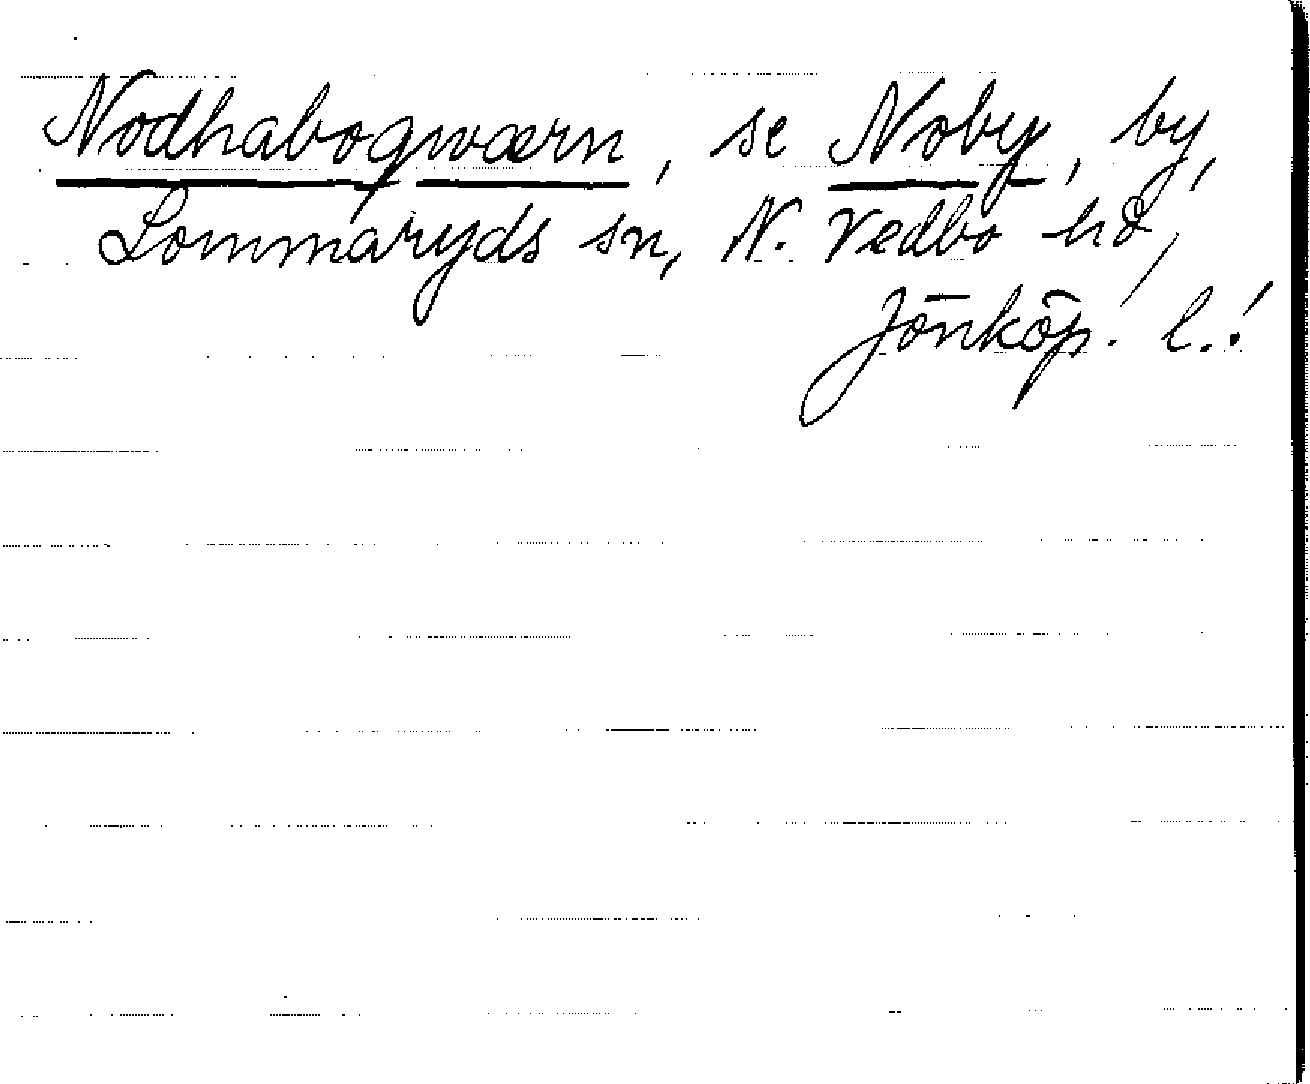 Nodhaboqwærn, se Noby, by,
Lommaryds sn, N. Vedbo hd,
Jönköp. l.!